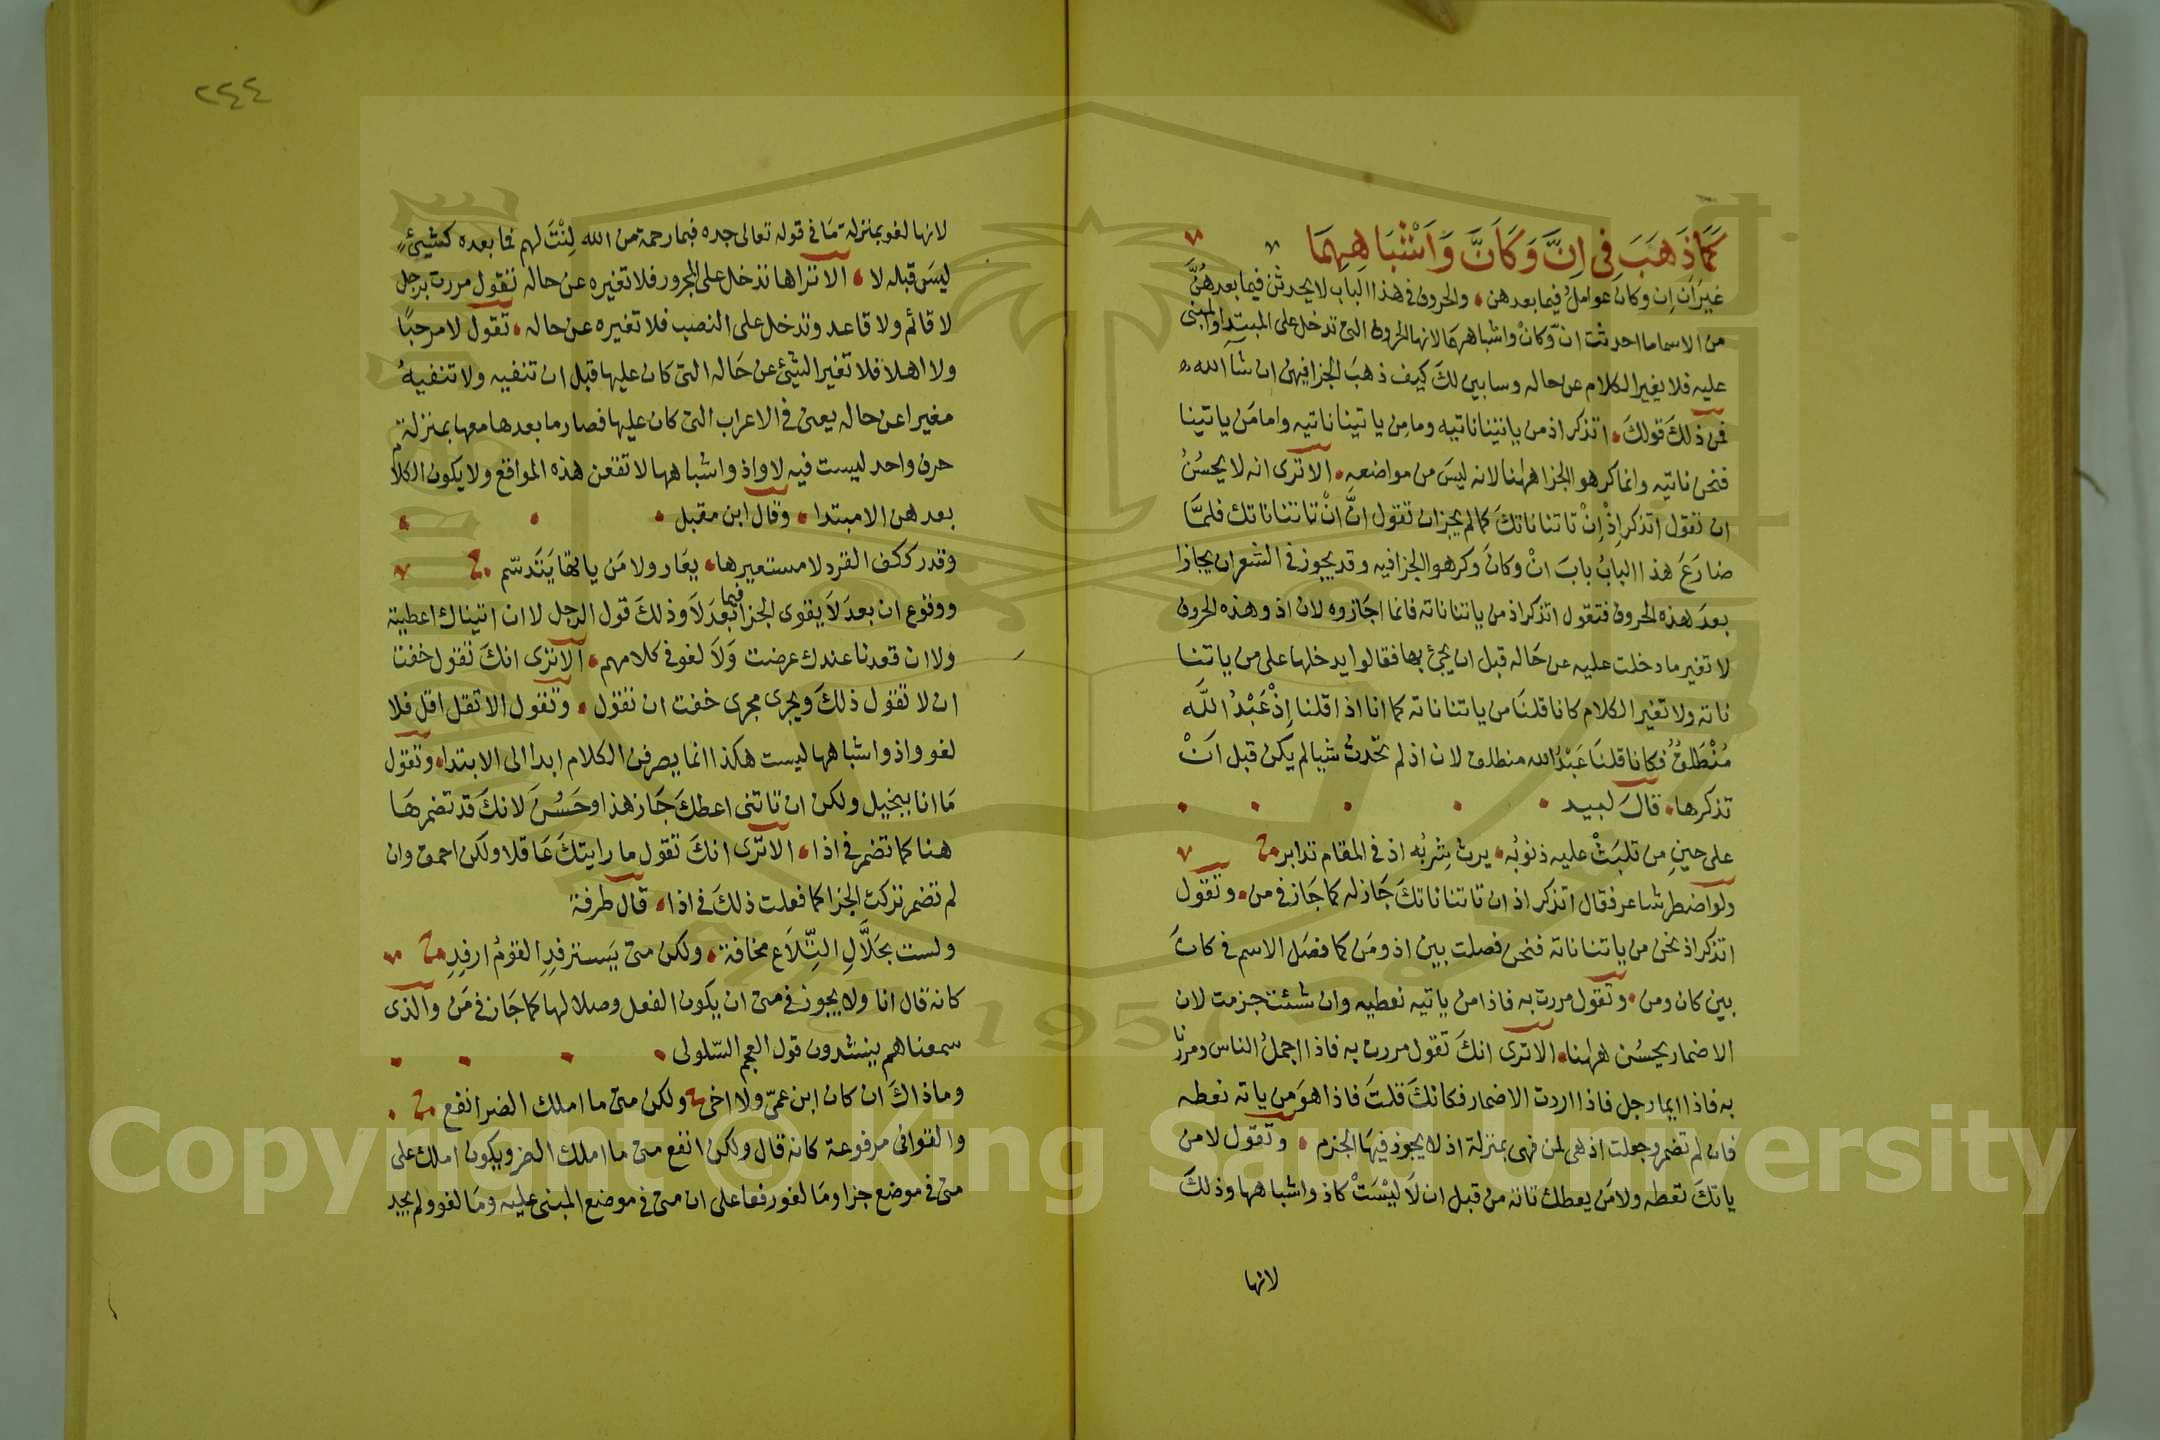 كَمَا ذَهَبَ فِي اِنَّ وَكَانَّ وَاَشْبَاهِهِمَا
غيرَ اَن اِن وكان عوامِلُ فيما بعدهن والحروف في هذا الباب لا يحدثن فيما بعدهُنَّ
من الاسما ما احدثت انّ وكانْ واشباههما لانها الحروف التى تدخل على المبتدا والمبنى
عليه فلا يغير الكلام عن حاله وسابين لكَ كيف ذهبَ الجزا فيهن ان شآ الله
فمن ذلكَ قولكَ اتذكر اذ من ياتينا ناتيه وما من ياتينا ناتيه واما مَن ياتينا
فنحن ناتيه وانما كرهوا الجزا هاهنا لانه ليسَ من مواضعهِ الا ترى انه لا يحسُنُ
ان تقول اتذكر اِذْ اِنْ تاتنا ناتكَ كما لم يجز ان تقول انَّ انْ تاتنا ناتك فلمَّا
ضارَعَ هذا البابُ بابَ انْ وكانَ وكرهوا الجزا فيه وقد يجوز في الشعر ان يجازا
بعدَ هذه الحروف فتقول اتذكر اذ من ياتنا ناته فانما اجَازوه لان اذ وهذه الحروف
لا تغير ما دخلت عليه عن حَاله قبل ان يجئ بها فقالوا يدخلها على من ياتنا
ناته ولا تغير الكلام كانا قلنَا من ياتنا ناته كما انا اذا قلنا اِذْ عَبْدُ اللَّه
مُنْطَلِقٌ فكانا قلنَا عَبْدُ الله منطلق لان اذ لم تحْدث شيا لم يكن قبل اَنْ
تذكرها قالَ لبيد
على حينِ من تلبَثْ عليه ذنوبُه يرث شِربُه اذ في المقام تدابر
ولو اضطر شاعر فقال اتذكر اذ ان تاتنا ناتكَ جَاز له كما جَاز في من وتقول
اتذكر اذ نحن من ياتنا ناته فنحن فصلت بين اذ ومَن كما فصَل الاسم في كانَ
بين كان ومن وتقول مررت به فاذا من ياتيه نعطيه وان شئت جزمت لان
الاضمار يحسُن هاهنا الا ترى انكَ تقول مررت به فاذا اجملُ الناس ومررنا
به فاذا ايما رجل فاذا اردت الاضمار فكانكَ قلتَ فاذا هوَ من ياته نعطه
فان لم تضمر وجعلت اذ هى لمن فهى بمنزلة اذ لا يجوز فيهَا الجزم وتقول لا من
ياتكَ تعطه ولا مَن يعطك تاته من قبل ان لَا ليْسَتْ كاذ واشباهها وذلكَ
لانها
٢٤٤
لانها لغو بمنزلة مَا في قوله تعالى جده فبما رحمة من الله لِنْتَ لهم فما بعده كشيئٍ
ليسَ قبله لا الا تراها تدخل على المجرور فلا تغيره عن حاله تقول مررت برجل
لا قائم ولا قاعد وتدخل على النصب فلا تغيره عن حاله تقول لا مرحبًا
ولا اهلا فلا تغير الشيئ عن حَاله التى كان عليها قبل ان تنفيه ولا تنفيهُ
مغيرا عن حاله يعنى في الاعراب التى كان عليها فصار ما بعدها معها بمنزلة
حرف واحد ليست فيه لا واذ واشباهها لا تقعن هذه المواقع ولا يكون الكلام
بعدهن الا مبتدا وقال ابن مقبل
وقدر ككف القرد لا مستعيرها يعَار ولا مَن ياتها يَتَدسّم
ووقوع ان بعدَ لَا يقوى الجزا فيما بعدَ لَا وذلكَ قول الرجل لا ان اتيناك اعطيتنا
ولا ان قعدنا عندك عرضت وَلَا لغو في كلامهم الا ترى انكَ تقول خفت
ان لا تقول ذلكَ ويجرى مجرى خفت ان تقول وتقول الا تقل اقل فلا
لغو واذ واشباهها ليست هكذا انما يصرفن الكلام ابدا الى الابتدا وتقول
مَا انا ببخيل ولكن ان تاتنى اعطكَ جَاز هذا وحَسُنَ لانكَ قد تضمرهَا
هنا كما تضمر في اذا الا ترى انكَ تقول ما رايتكَ عَاقلا ولكن احمق وان
لم تضمر تركت الجزا كما فعلت ذلكَ في اذا قال طرفة
ولست بحَلَّالِ التِّلَاع مخافة ولكن متى يَسترفدِ القومُ ارفِدِ
كانه قال انا ولا يجوز في متى ان يكون الفعل وصلا لها كما جَاز في مَن والذى
سمعناهم ينشدون قول العجم السّلولى
وماذاكَ ان كان ابن عمّى ولا اخى ولكن متى ما املك الضر انفع
والقوافى مرفوعة كانه قال ولكن انفع متى ما املك الضر ويكون املك على
متى في موضع جزا ومَا لغو رفعا على ان متى في موضع المبنى عليه ومَا لغو ولم يجد
Copyright © King Saud University
1957